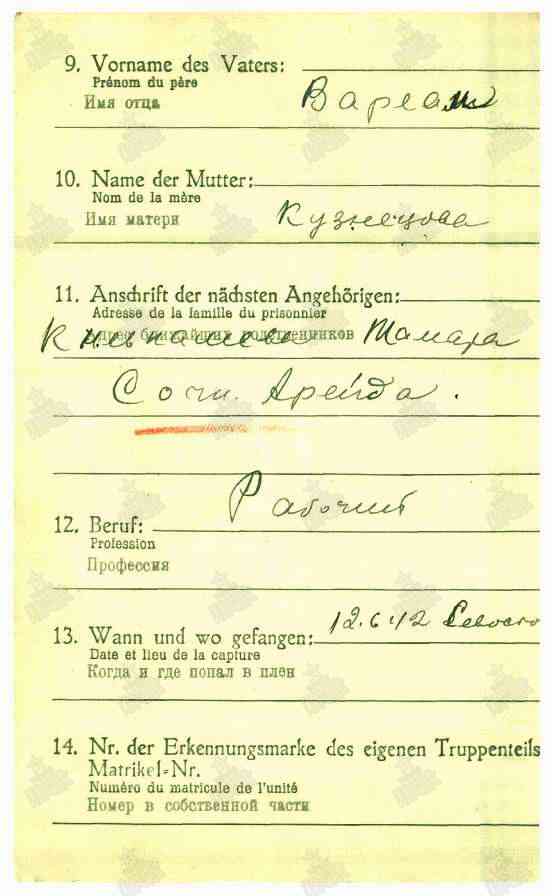 9. Vorname des Vaters:
Prénom du père
Имя отца
Варлам
10. Name der Mutter:
Nom de la mère
Имя матери
Кузнецова
11. Anschrift der nächsten Angehörigen:
Adresse de la famille du prisonnier
Адрес ближайших родственников
Тамара
Сочи. Арейда.
Рабочий
12. Beruf:
Profession
Профессия
12.6.42
13. Wann und wo gefangen:
Date et lieu de la capture
Когда и где попал в плен
14. Nr. der Erkennungsmarke des eigenen Truppenteils
Matrikel-Nr.
Numéro du matricule de l'unité
Номер в собственной части